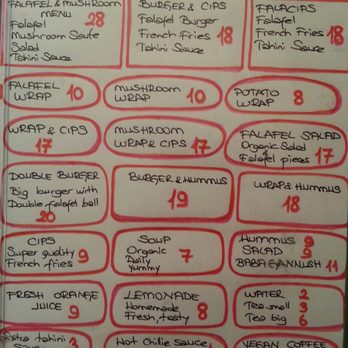 FALAFEL & MUSHROOM
MENU
Falafel
Mushroom Saute
Salad
Tahini Sauce
28
BURGER & CIPS
Falafel Burger
French Fries
Tahini Sauce
18
FALACIPS
Falafel
French Fries
Tahini Sauce
18
FALAFEL
WRAP
10
MUSHROOM
WRAP
10
POTATO
WRAP
8
WRAP & CIPS
17
MUSHROOM
WRAP & CIPS
17
FALAFEL SALAD
Organic Salad
Falafel pieces
17
DOUBLE BURGER
Big burger with
Double falafel ball
20
BURGER & HUMMUS
19
WRAP & HUMMUS
18
CIPS
Super quality
French fries
9
SOUP
Organic
Daily
yummy
7
HUMMUS 9
SALAD 9
BABAGANNUSH 11
FRESH ORANGE
JUICE
9
LEMONADE
Homemade
Fresh, tasty
8
WATER 2
Tea small 3
Tea big 6
Extra tahini
3
Hot Chilie Sauce
VEGAN COFFEE